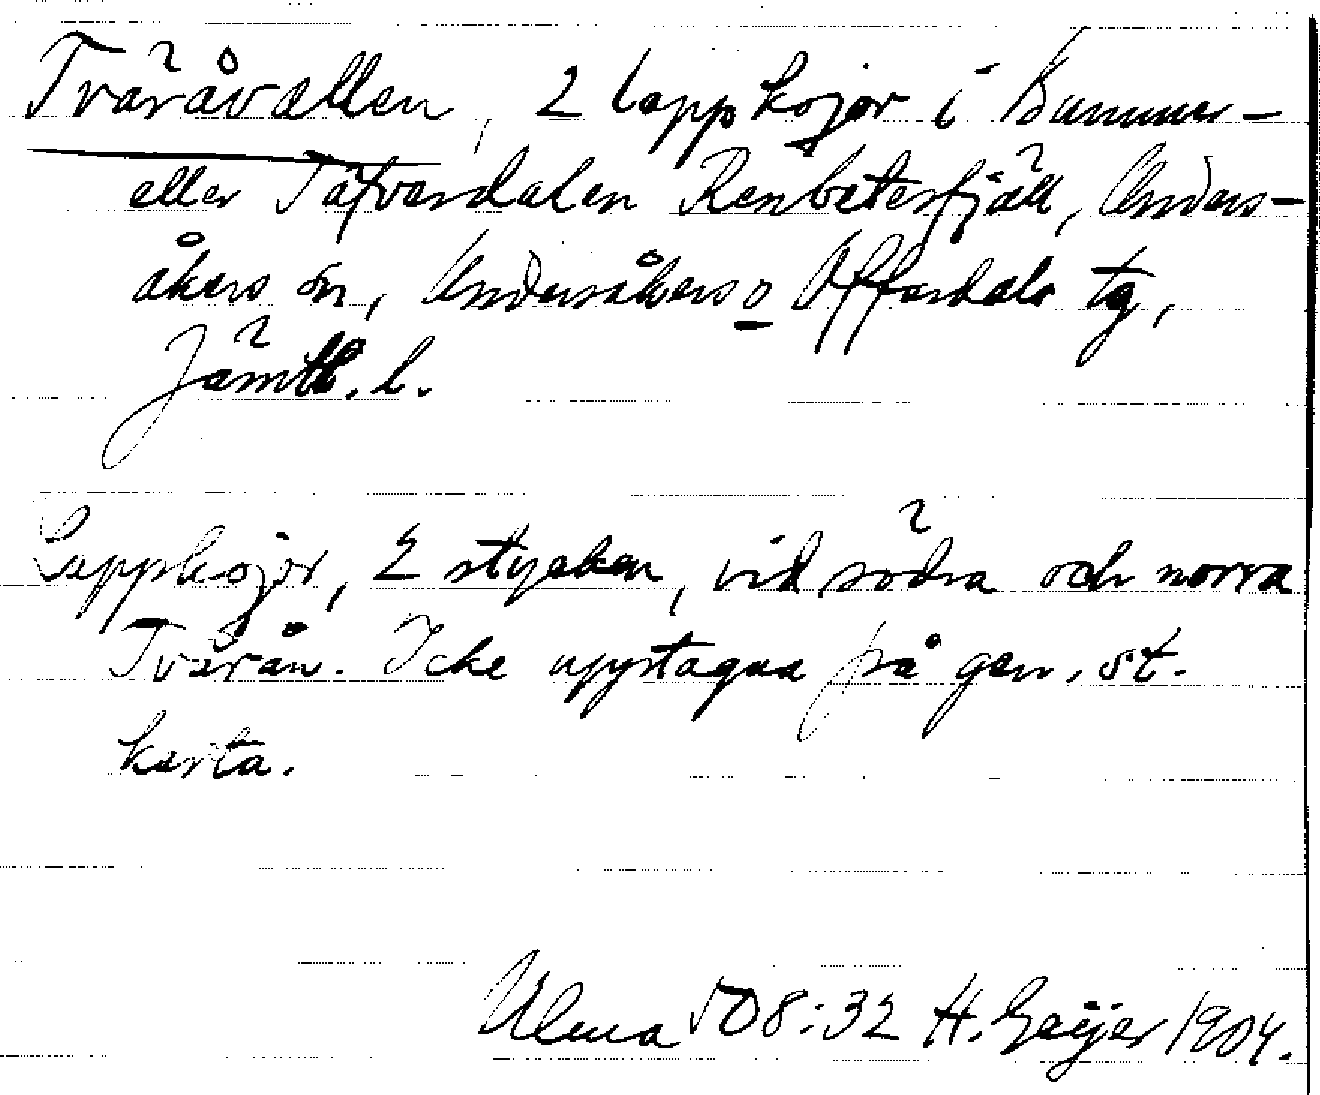 Tväråvallen, 2 lappkojor i Bummer-
eller Tåfverdalen Renbetesfjäll, Unders-
åkers sn, Undersåkers o Offerdals tg,
Jämtl. l.
Lappkojor, 2 stycken, vid södra och norra
Tvärån. Icke upptagna på gen. st.
karta.
Ulma 508:32 H. Geijer 1904.